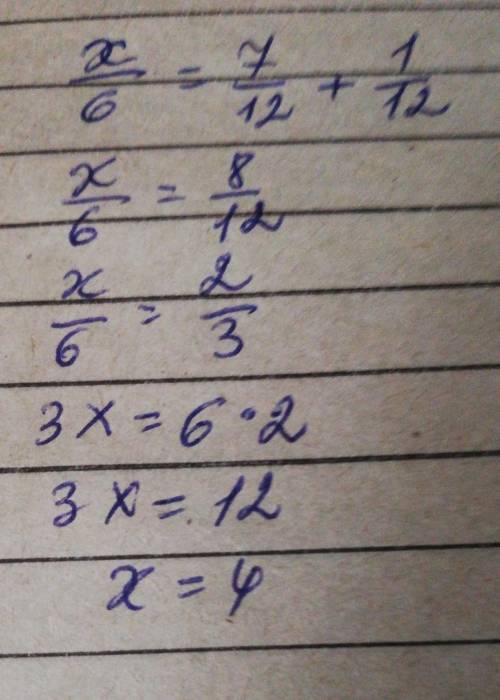 x/6 = 7/12 + 1/12
x/6 = 8/12
x/6 = 2/3
3x = 6 · 2
3x = 12
x = 4